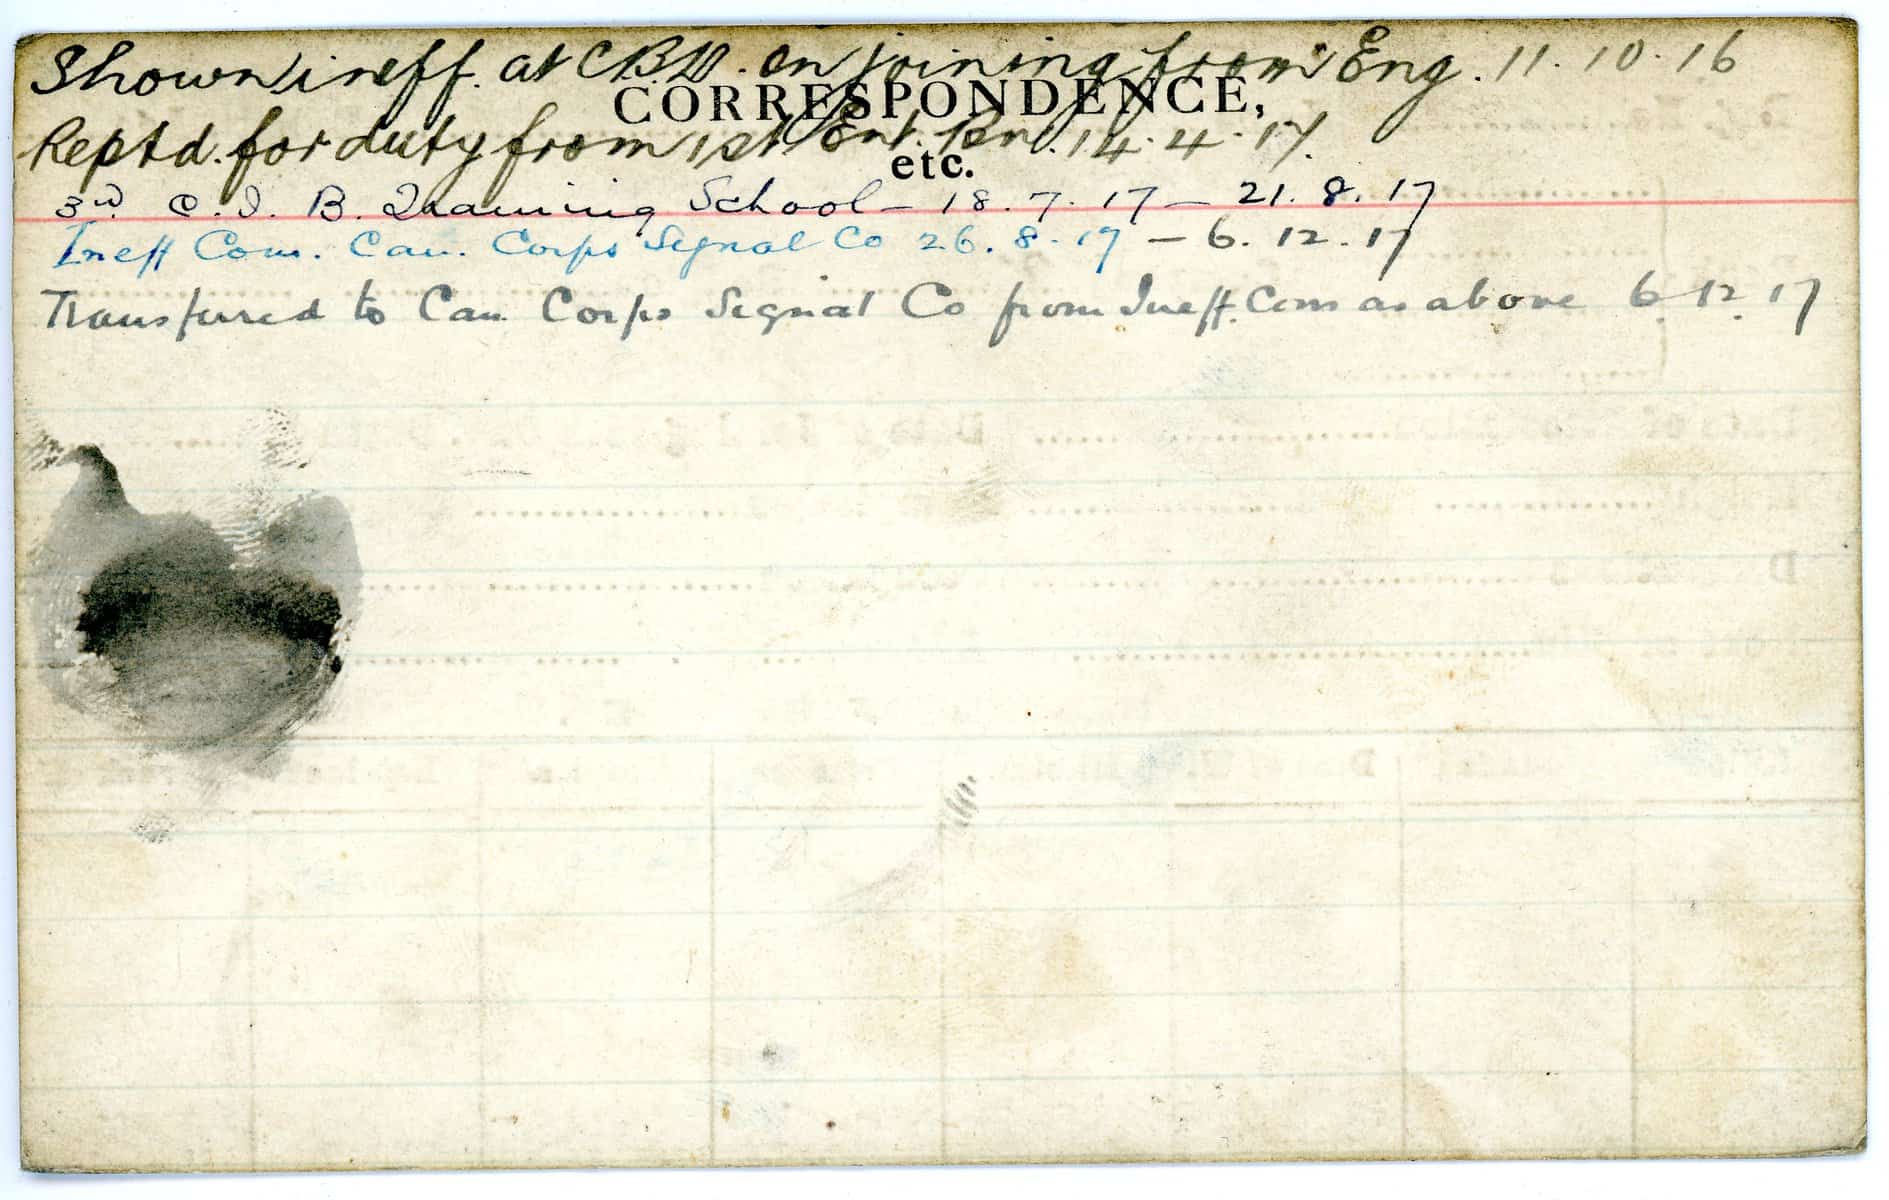 Shown ineff. at C.B.D. on joining from Eng. 11.10.16
CORRESPONDENCE,
Reptd. for duty from 1st Ent. Bn. 14.4.17.
etc.
3rd C.I.B. Training School – 18.7.17 – 21.8.17
Ineff Com. Can. Corps Signal Co 26.8.17 – 6.12.17
Transferred to Can Corps Signal Co from Ineff. Com as above 6.12.17